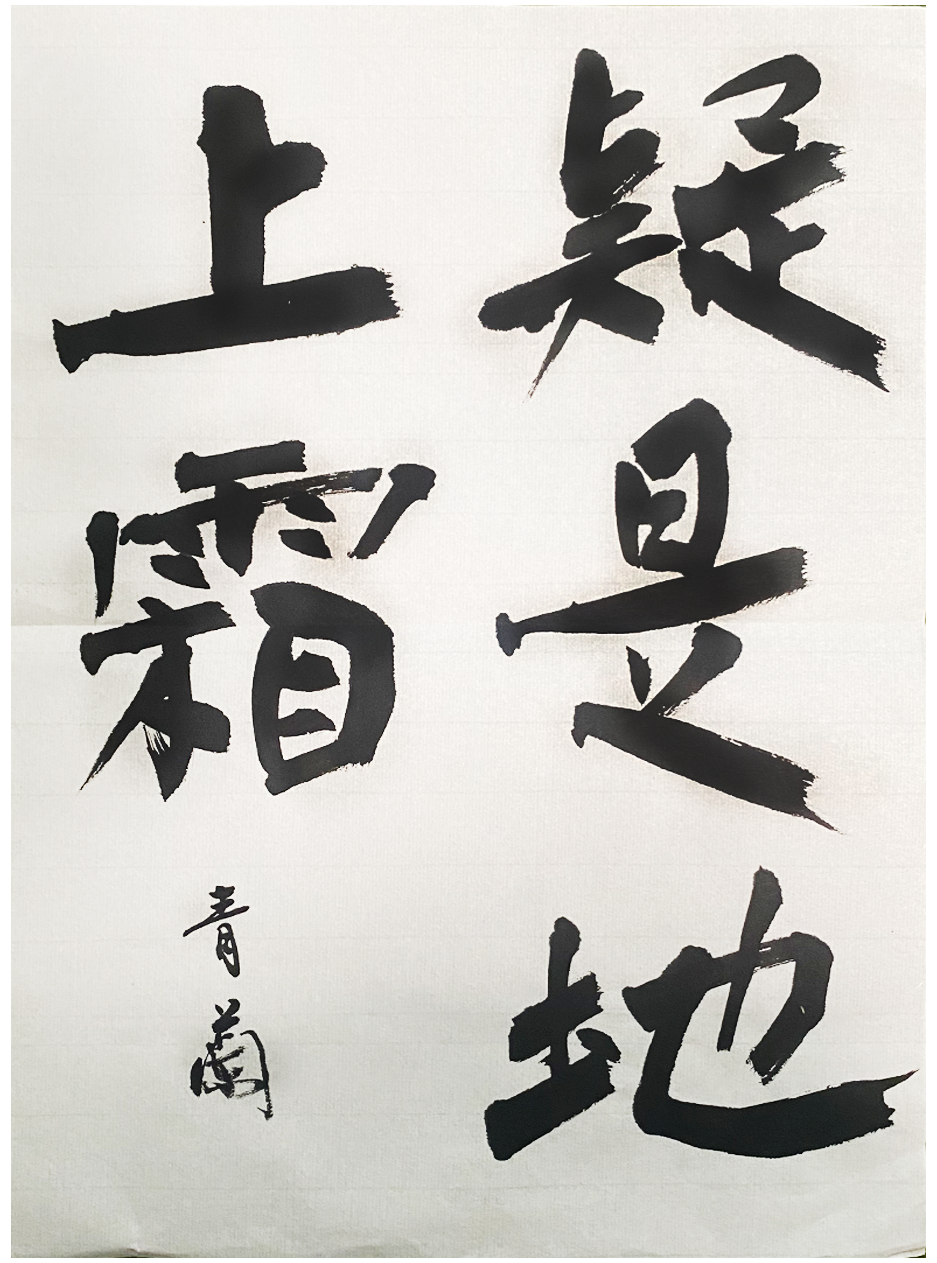 疑是地
上霜
青蘭